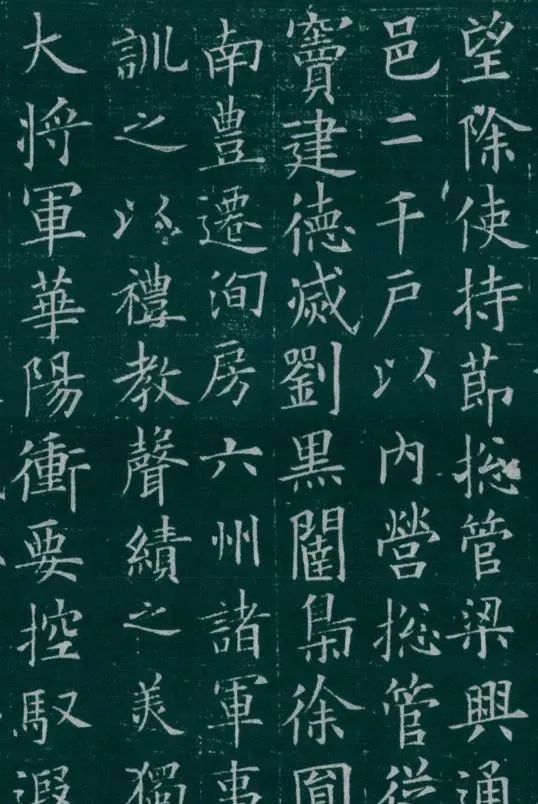 望除使持莭捴管梁興通
邑二千戶以内營捴管從
竇建德滅劉黒闥梟徐圎
南豊遷洵房六州諸軍事
訓之以禮教聲績之美獨
大将軍華陽衝要控馭遐